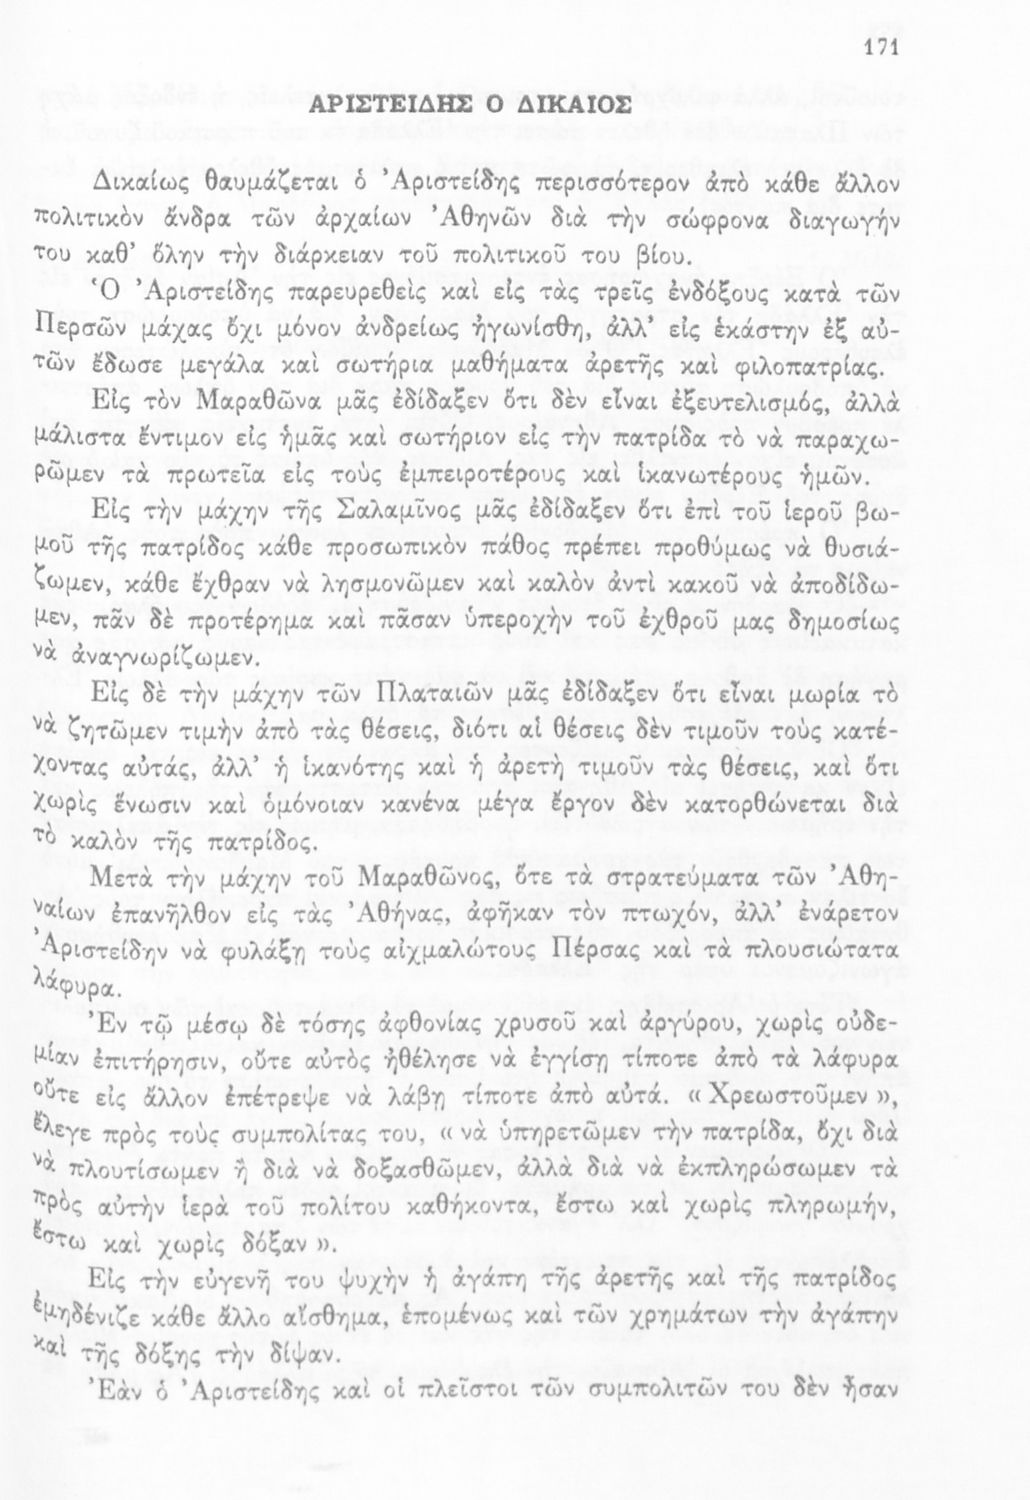 171
ΑΡΙΣΤΕΙΔΗΣ Ο ΔΙΚΑΙΟΣ
Δικαίως θαυμάζεται ὁ Ἀριστείδης περισσότερον ἀπὸ κάθε ἄλλον
πολιτικὸν ἄνδρα τῶν ἀρχαίων Ἀθηνῶν διὰ τὴν σώφρονα διαγωγήν
του καθ’ ὅλην τὴν διάρκειαν τοῦ πολιτικοῦ του βίου.
Ὁ Ἀριστείδης παρευρεθεὶς καὶ εἰς τὰς τρεῖς ἐνδόξους κατὰ τῶν
Περσῶν μάχας ὄχι μόνον ἀνδρείως ἠγωνίσθη, ἀλλ’ εἰς ἑκάστην ἐξ αὐ-
τῶν ἔδωσε μεγάλα καὶ σωτήρια μαθήματα ἀρετῆς καὶ φιλοπατρίας.
Εἰς τὸν Μαραθῶνα μᾶς ἐδίδαξεν ὅτι δὲν εἶναι ἐξευτελισμός, ἀλλὰ
μάλιστα ἔντιμον εἰς ἡμᾶς καὶ σωτήριον εἰς τὴν πατρίδα τὸ νὰ παραχω-
ρῶμεν τὰ πρωτεῖα εἰς τοὺς ἐμπειροτέρους καὶ ἱκανωτέρους ἡμῶν.
Εἰς τὴν μάχην τῆς Σαλαμῖνος μᾶς ἐδίδαξεν ὅτι ἐπὶ τοῦ ἱεροῦ βω-
μοῦ τῆς πατρίδος κάθε προσωπικὸν πάθος πρέπει προθύμως νὰ θυσιά-
ζωμεν, κάθε ἔχθραν νὰ λησμονῶμεν καὶ καλὸν ἀντὶ κακοῦ νὰ ἀποδίδω-
μεν, πᾶν δὲ προτέρημα καὶ πᾶσαν ὑπεροχὴν τοῦ ἐχθροῦ μας δημοσίως
νὰ ἀναγνωρίζωμεν.
Εἰς δὲ τὴν μάχην τῶν Πλαταιῶν μᾶς ἐδίδαξεν ὅτι εἶναι μωρία τὸ
νὰ ζητῶμεν τιμὴν ἀπὸ τὰς θέσεις, διότι αἱ θέσεις δὲν τιμοῦν τοὺς κατέ-
χοντας αὐτάς, ἀλλ’ ἡ ἱκανότης καὶ ἡ ἀρετὴ τιμοῦν τὰς θέσεις, καὶ ὅτι
χωρὶς ἕνωσιν καὶ ὁμόνοιαν κανένα μέγα ἔργον δὲν κατορθώνεται διὰ
τὸ καλὸν τῆς πατρίδος.
Μετὰ τὴν μάχην τοῦ Μαραθῶνος, ὅτε τὰ στρατεύματα τῶν Ἀθη-
ναίων ἐπανῆλθον εἰς τὰς Ἀθήνας, ἀφῆκαν τὸν πτωχόν, ἀλλ’ ἐνάρετον
Ἀριστείδην νὰ φυλάξῃ τοὺς αἰχμαλώτους Πέρσας καὶ τὰ πλουσιώτατα
λάφυρα.
Ἐν τῷ μέσῳ δὲ τόσης ἀφθονίας χρυσοῦ καὶ ἀργύρου, χωρὶς οὐδε-
μίαν ἐπιτήρησιν, οὔτε αὐτὸς ἠθέλησε νὰ ἐγγίσῃ τίποτε ἀπὸ τὰ λάφυρα
οὔτε εἰς ἄλλον ἐπέτρεψε νὰ λάβῃ τίποτε ἀπὸ αὐτά. « Χρεωστοῦμεν »,
ἔλεγε πρὸς τοὺς συμπολίτας του, « νὰ ὑπηρετῶμεν τὴν πατρίδα, ὄχι διὰ
νὰ πλουτίσωμεν ἢ διὰ νὰ δοξασθῶμεν, ἀλλὰ διὰ νὰ ἐκπληρώσωμεν τὰ
πρὸς αὐτὴν ἱερὰ τοῦ πολίτου καθήκοντα, ἔστω καὶ χωρὶς πληρωμήν,
ἔστω καὶ χωρὶς δόξαν ».
Εἰς τὴν εὐγενῆ του ψυχὴν ἡ ἀγάπη τῆς ἀρετῆς καὶ τῆς πατρίδος
ἐμηδένιζε κάθε ἄλλο αἴσθημα, ἑπομένως καὶ τῶν χρημάτων τὴν ἀγάπην
καὶ τῆς δόξης τὴν δίψαν.
Ἐὰν ὁ Ἀριστείδης καὶ οἱ πλεῖστοι τῶν συμπολιτῶν του δὲν ἦσαν